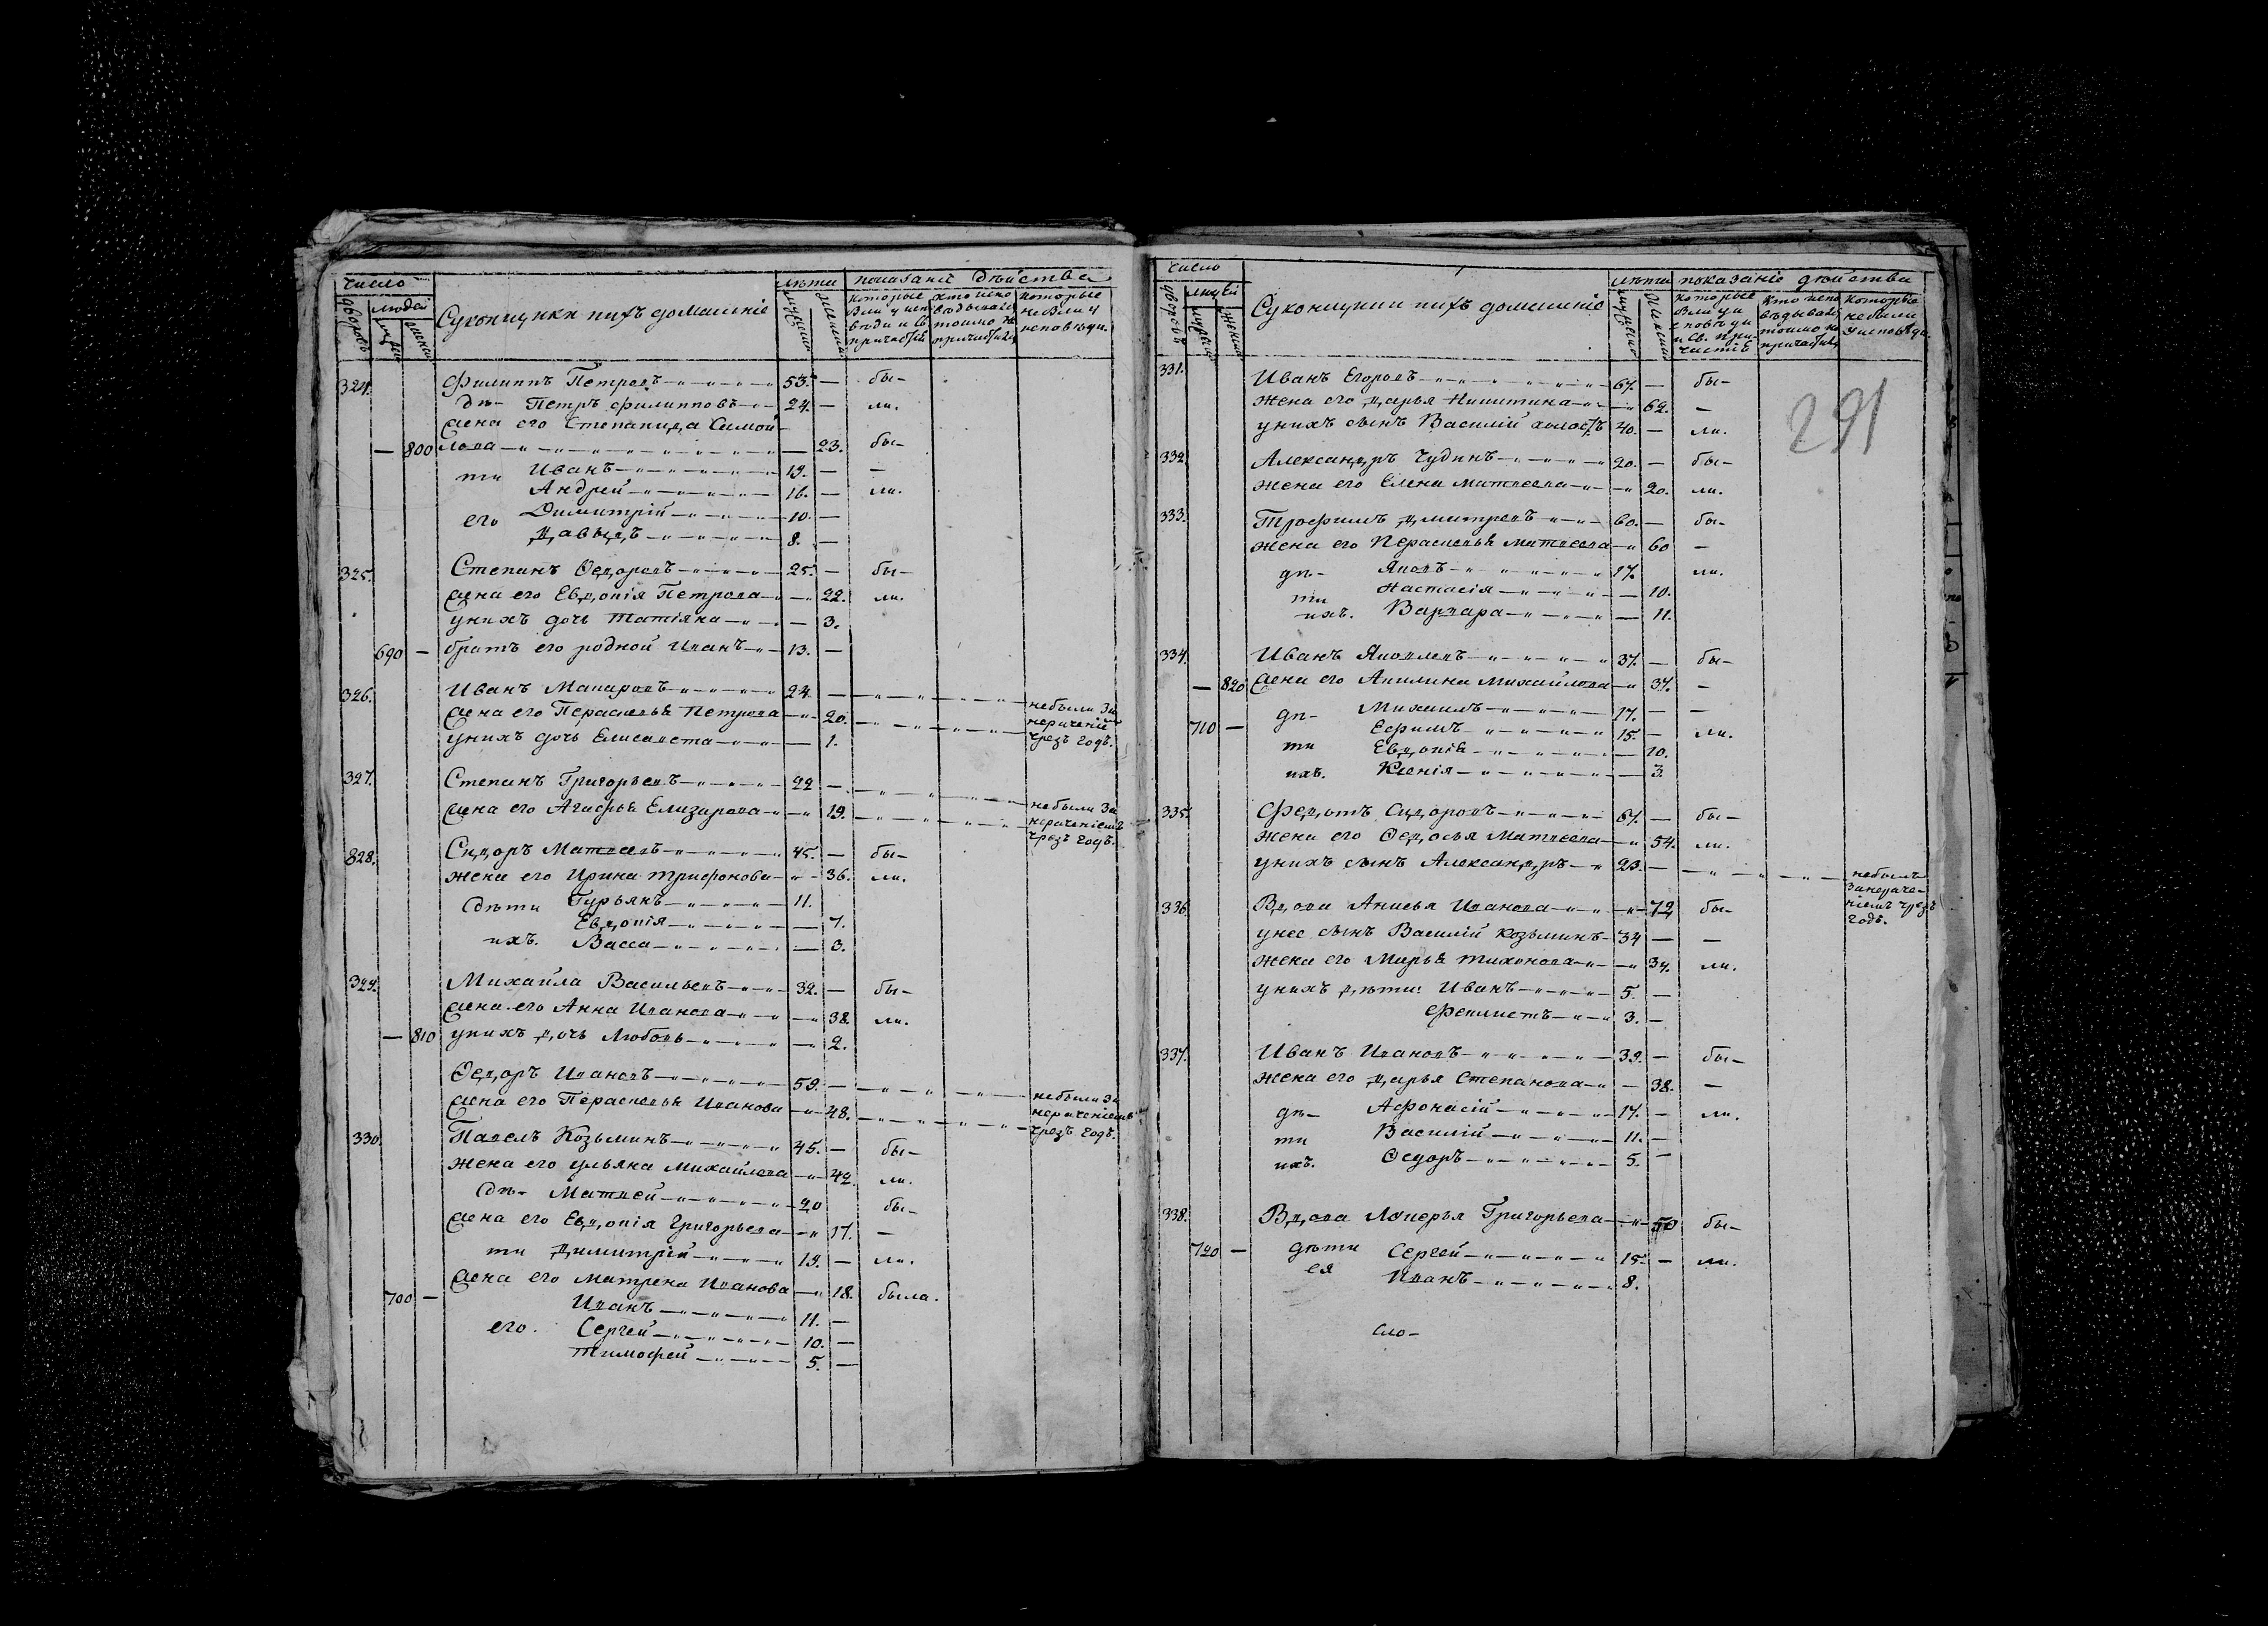 число
людей
дворовъ
Суконщики и ихъ домашніе
лѣта
показаніе дѣйства
которые были у исповѣди и св. причастія
кто исповѣдывался токмо не причастился
которые не были у исповѣди
324. Филиппъ Петровъ 53. — бы-
дѣ- Петръ Филипповъ 24. — ли.
жена его Степанида Самой-
— 800 лова — 23. бы-
ти Иванъ 19. — —
Андрей 16. — ли.
его Димитрій 10. —
Давыдъ 8. —
325. Степанъ Ѳедоровъ 25. — бы-
жена его Евдокія Петрова — 22. ли.
у нихъ дочь Татіяна — 3.
690 — братъ его родной Иванъ 13. —
326. Иванъ Макаровъ 24 —
жена его Перасковья Петрова — 20. небыли за
нераченіе
у нихъ дочь Елисавета — 1. чрезъ годъ.
327. Степанъ Григорьевъ 22 —
жена его Агафья Елизарова — 19. небыли за
нераченіемъ
чрезъ годъ.
828. Сидоръ Матвеевъ 45. — бы-
жена его Ирина Трифонова — 36. ли.
дѣти Гурьянъ 11.
Евдокія — 7.
ихъ. Васса — 3.
329. Михайла Васильевъ 39. — бы-
жена его Анна Иванова — 38. ли.
— 810 у нихъ дочь Любовь — 2.
Ѳедоръ Ивановъ 59. —
жена его Перасковья Иванова — 48. небыли за
нераченіемъ
чрезъ годъ.
330. Павелъ Козьминъ 45. — бы-
жена его Ульяна Михайлова — 42. ли.
дѣ- Матвей 20 бы-
жена его Евдокія Григорьева — 17. —
ти Димитрий 19. — ли.
700 — жена его Матрена Иванова — 18. была.
Иванъ 11. —
его. Сергей 10. —
Тимофей 5. —
число
людей
дворовъ
Суконщики и ихъ домашніе
лѣта
показаніе дѣйства
которые были у исповѣди и св. причастія
кто исповѣдывался токмо не причастился
которые не были у исповѣди
291
331. Иванъ Егоровъ 67. — бы-
жена его Дарья Никитина — 62. —
у нихъ сынъ Василій холостъ 40. — ли.
332. Александръ Чудинъ 20. — бы-
жена его Елена Матвеева — 20. ли.
333. Трофимъ Дмитревъ 60. — бы-
жена его Перасковья Матвеева — 60 —
дѣ- Яковъ 17. ли.
ти Настасія — 10.
ихъ. Варвара — 11.
334. Иванъ Яковлевъ 37. — бы-
— 820 жена его Акилина Михайлова — 37. —
дѣ- Михаилъ 17. — —
710 — Ефимъ 15. — ли.
ти Евдокія — 10.
ихъ. Ксенія — 3.
335. Федотъ Сидоровъ 67. — бы-
жена его Ѳедосья Матвеева — 54. ли.
у нихъ сынъ Александръ 23. — небылъ
за нераче-
ніемъ чрезъ
годъ.
336. Вдова Анисья Иванова — 72 бы-
у нее сынъ Василій Козьминъ 34 — —
жена его Марья Тихонова — 34. ли.
у нихъ дѣти: Иванъ 5. —
Феклистъ 3. —
337. Иванъ Ивановъ 39. — бы-
жена его Дарья Степанова — 38. —
дѣ- Афонасій 17. — ли.
ти Василий 11. —
ихъ. Ѳедоръ 5. —
338. Вдова Лукерья Григорьева — 50 бы-
720 — дѣти Сергей 15. — ли.
ея Иванъ 8.
сло-